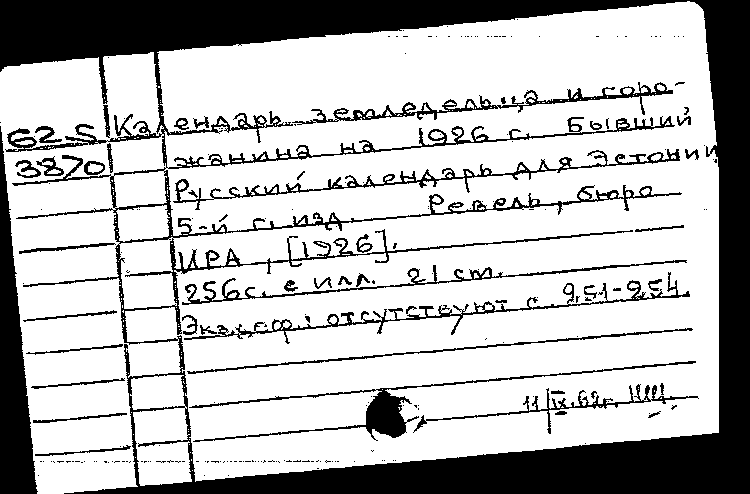 62.5 Календарь земледельца и горо-
3870 жанина на 1926 г. Бывший
Русский календарь для Эстонии
5-й г. изд. Ревель, бюро
ИРА, [1926].
256с. с илл. 21 cm.
Экз.деф.: отсутствуют с. 251-254.
11/IX.62г.